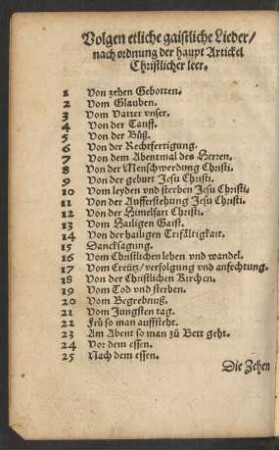 Volgen etliche gaistliche Lieder/
nach ordnung der haupt Artickel
Christlicher leer.
1 Von zehen Gebotten.
2 Vom Glauben.
3 Vom Vatter vnser.
4 Von der Tauff.
5 Von der Bůß.
6 Von der Rechtfertigung.
7 Von dem Abentmal des Herren.
8 Von der Menschwerdung Christi.
9 Von der geburt Jesu Christi.
10 Vom leyden vnd sterben Jesu Christi.
11 Von der Aufferstehung Jesu Christi.
12 Von der Himelfart Christi.
13 Vom Hailigen Gaist.
14 Von der hailigen Trifältigkait.
15 Dancksagung.
16 Vom Christlichen leben vnd wandel.
17 Vom Creütz/ verfolgung vnd anfechtung.
18 Von der Christlichen Kirchen.
19 Vom Tod vnd sterben.
20 Vom Begrebnuß.
21 Vom Jungsten tag.
22 Frů so man auffsteht.
23 Am Abent so man zů Bett geht.
24 Vor dem essen.
25 Nach dem essen.
Die Zehen